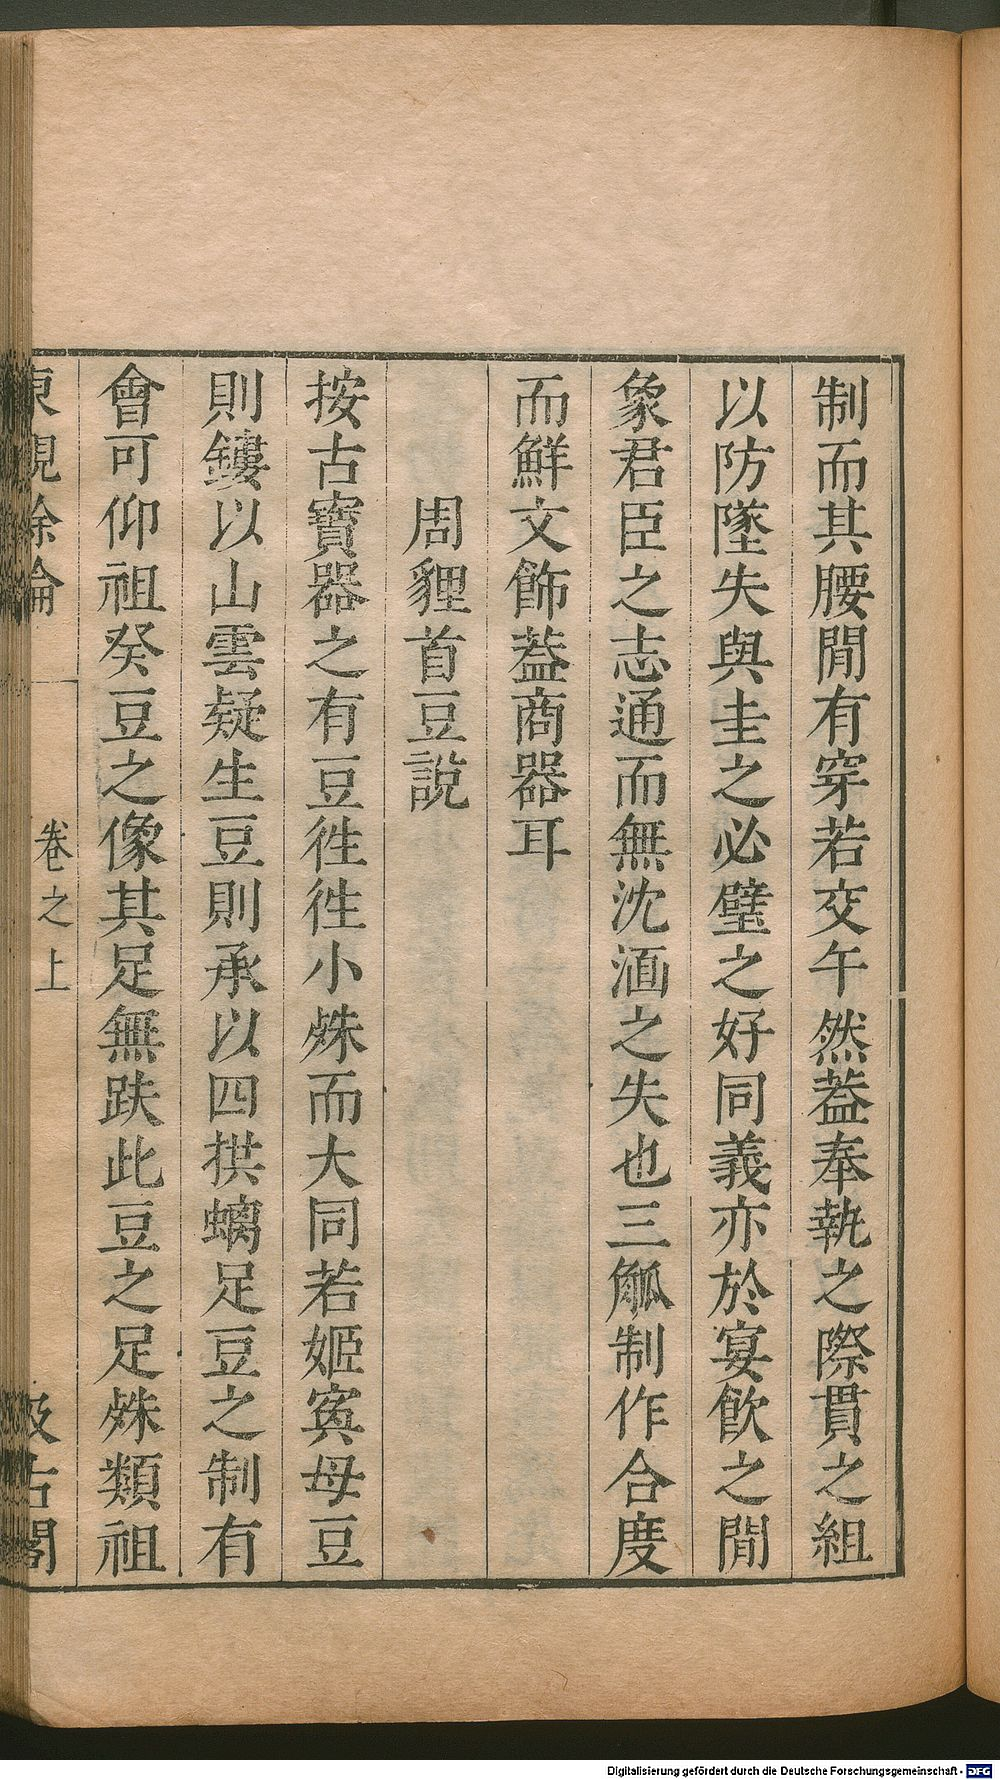 制而其腰閒有穿若交午然葢奉執之際貫之組
以防墜失與圭之必璧之好同義亦於宴飲之閒
象君臣之志通而無沈湎之失也三觚制作合度
而鮮文飾葢商器耳
周貍首豆說
按古寶器之有豆徃徃小殊而大同若姬寅母豆
則鏤以山雲疑生豆則承以四拱螭足豆之制有
會可仰祖癸豆之像其足無趺此豆之足殊類祖
東觀餘論
卷之上
汲古閣
Digitalisierung gefördert durch die Deutsche Forschungsgemeinschaft - DFG